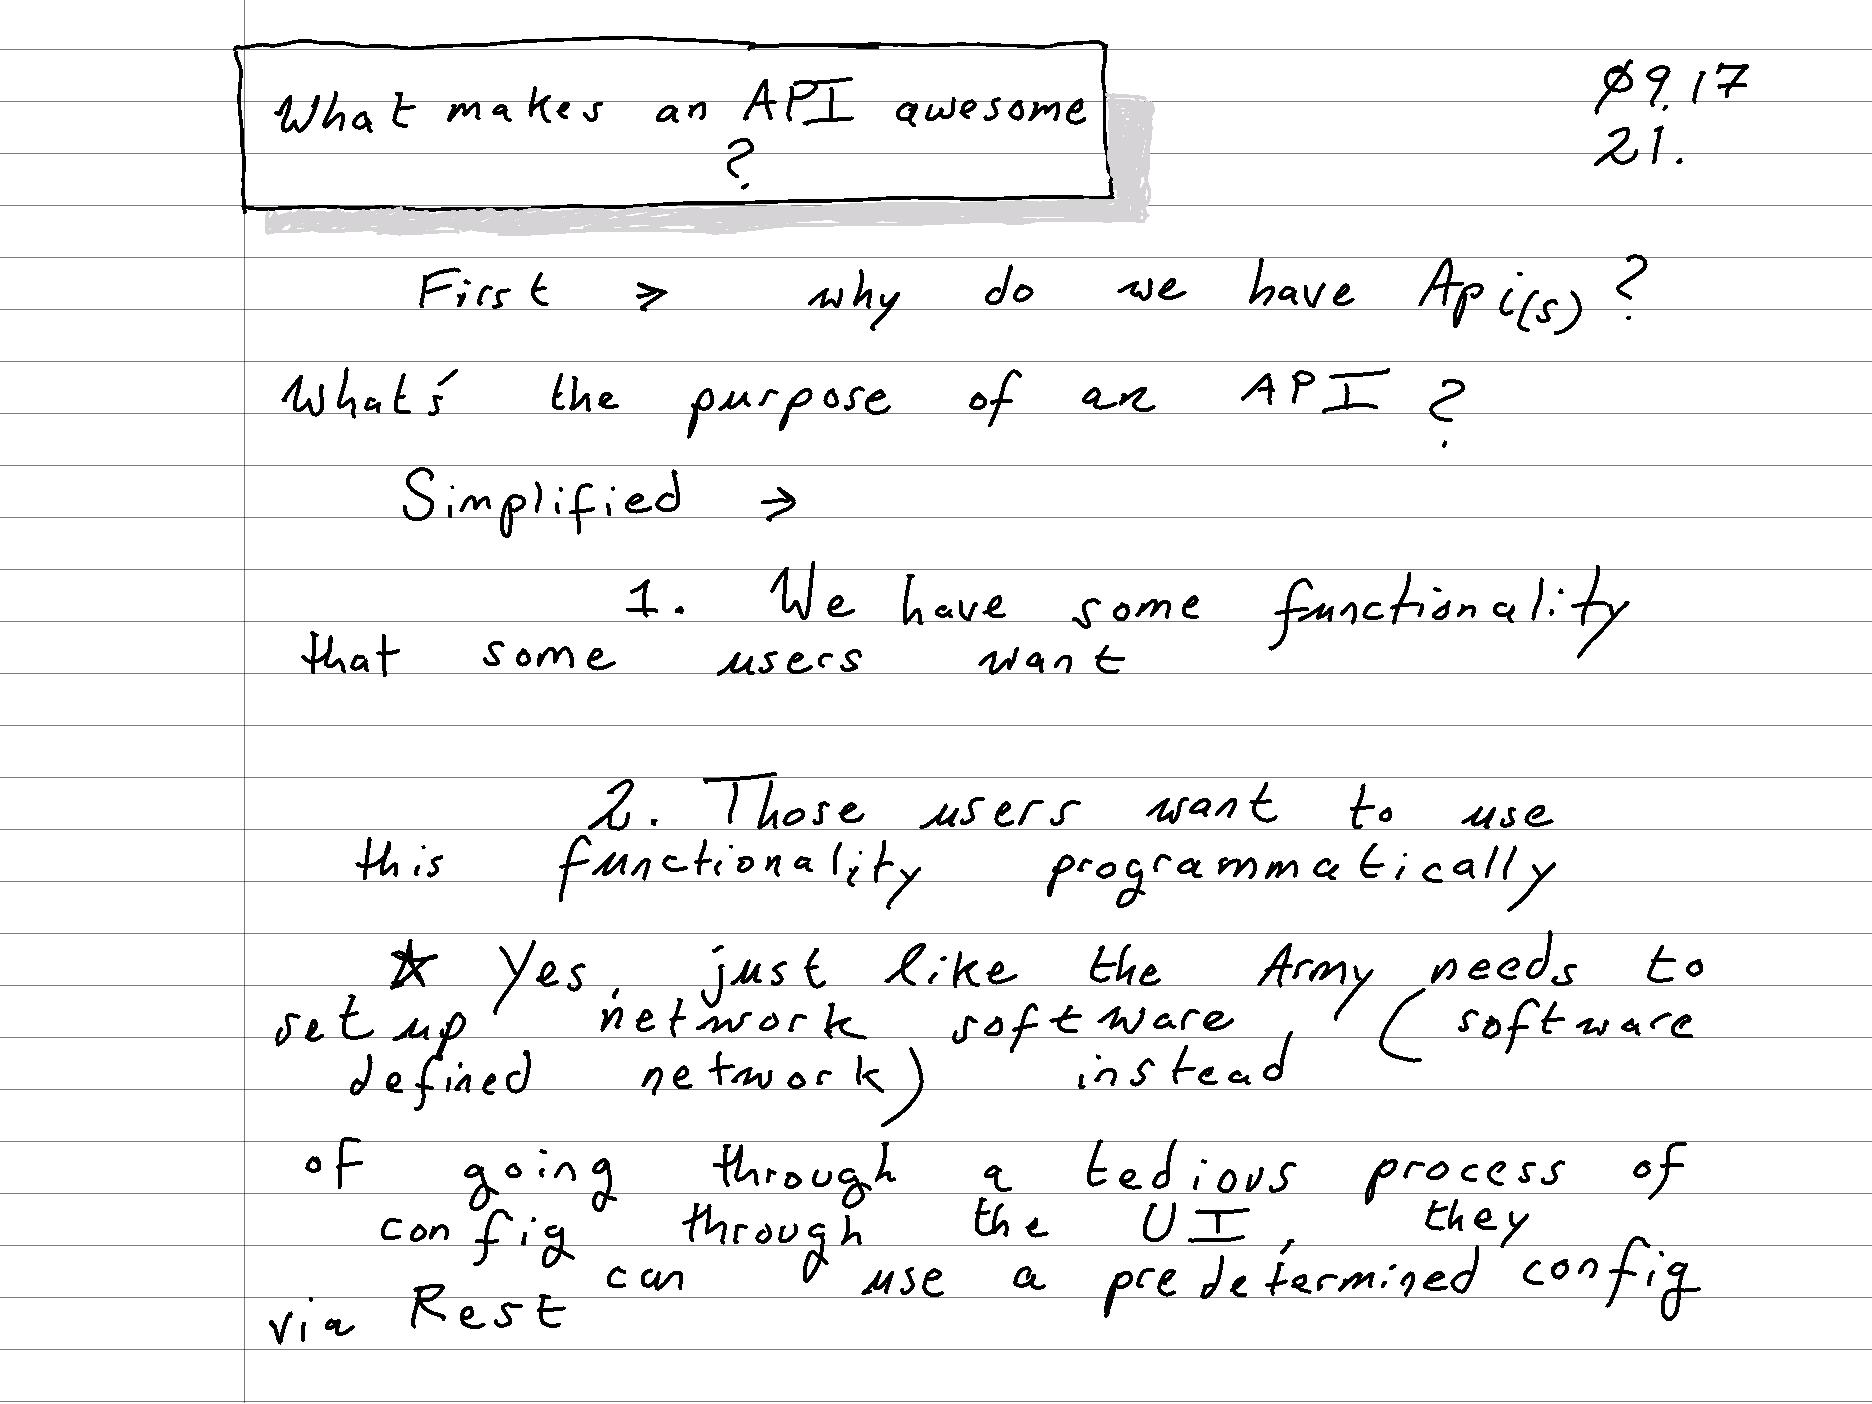 What makes an API awesome
?
Ø9.17
21.
First → why do we have Api(s)?
What's the purpose of an API?
Simplified →
1. We have some functionality
that some users want
2. Those users want to use
this functionality programmatically
☆ Yes, just like the Army needs to
set up network software, (software
defined network) instead
of going through a tedious process of
config through the UI, they
can use a predetermined config
via Rest